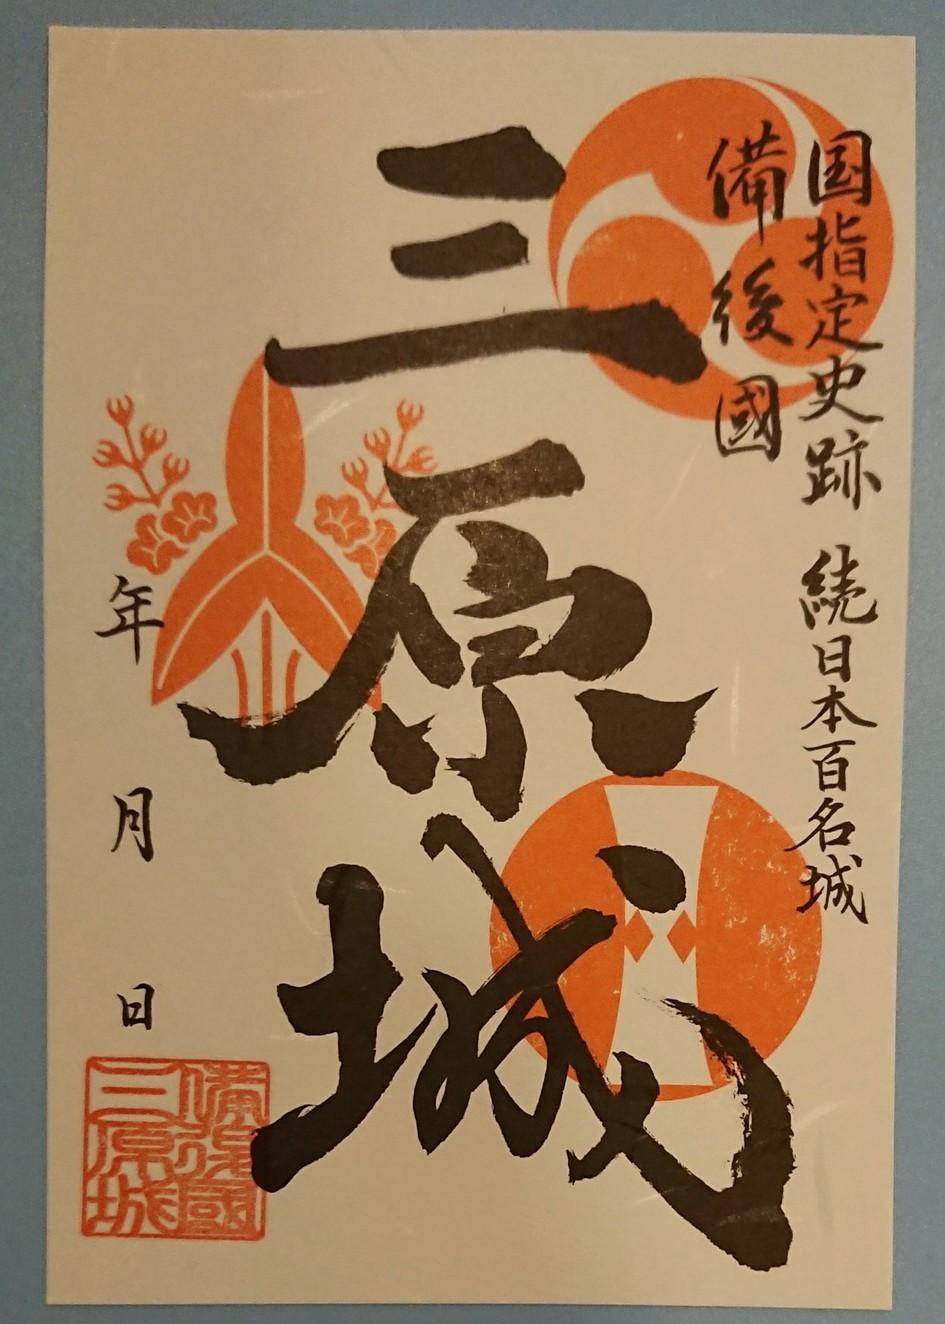 国指定史跡 続日本百名城
備後國
三原城
年 月 日
備後國
三原城